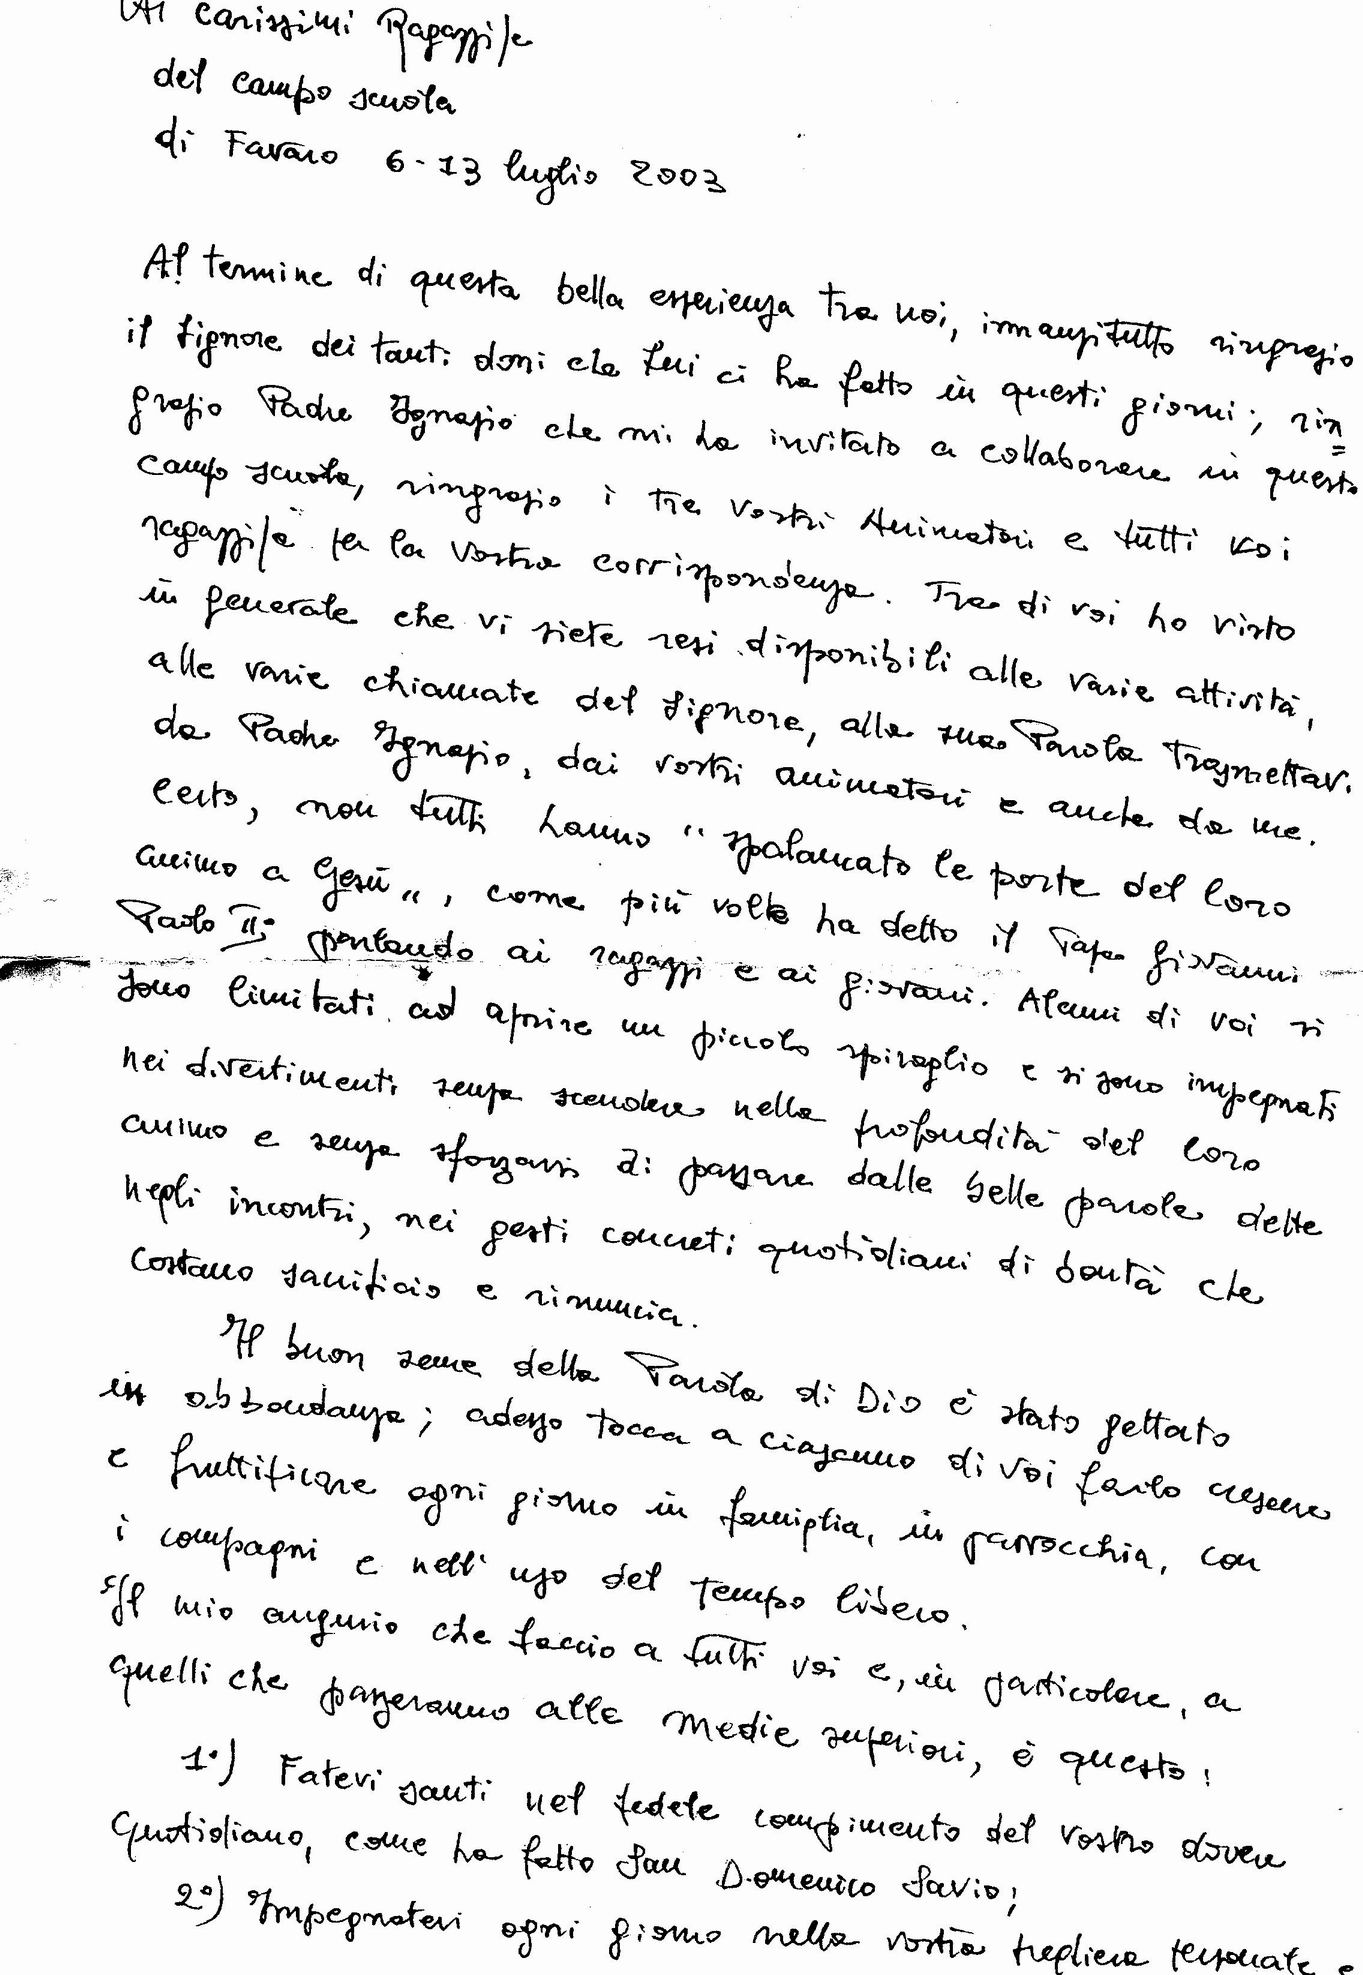 Ai carissimi Ragazzi/e
del campo scuola
di Favaro 6-13 luglio 2003
Al termine di questa bella esperienza tra noi, innanzitutto ringrazio
il Signore dei tanti doni che Lui ci ha fatto in questi giorni; rin=
grazio Padre Ignazio che mi ha invitato a collaborare in questo
campo scuola, ringrazio i tre vostri Animatori e tutti voi
ragazzi/e per la vostra corrispondenza. Tra di voi ho visto
in generale che vi siete resi disponibili alle varie attività,
alle varie chiamate del Signore, alla sua Parola trasmettavi
da Padre Ignazio, dai vostri animatori e anche da me.
Certo, non tutti hanno "spalancato le porte del loro
animo a Gesù", come più volte ha detto il Papa Giovanni
Paolo II° parlando ai ragazzi e ai giovani. Alcuni di voi si
sono limitati ad aprire un piccolo spiraglio e si sono impegnati
nei divertimenti senza scendere nella profondità del loro
animo e senza sforzarsi di passare dalle belle parole dette
negli incontri, nei gesti concreti quotidiani di bontà che
costano sacrificio e rinuncia.
Il buon seme della Parola di Dio è stato gettato
in abbondanza; adesso tocca a ciascuno di voi farlo crescere
e fruttificare ogni giorno in famiglia, in parrocchia, con
i compagni e nell'uso del tempo libero.
Il mio augurio che faccio a tutti voi e, in particolare, a
quelli che passeranno alle Medie superiori, è questo:
1°) Fatevi santi nel fedele compimento del vostro dovere
quotidiano, come ha fatto San Domenico Savio;
2°) Impegnatevi ogni giorno nella vostra preghiera personale e